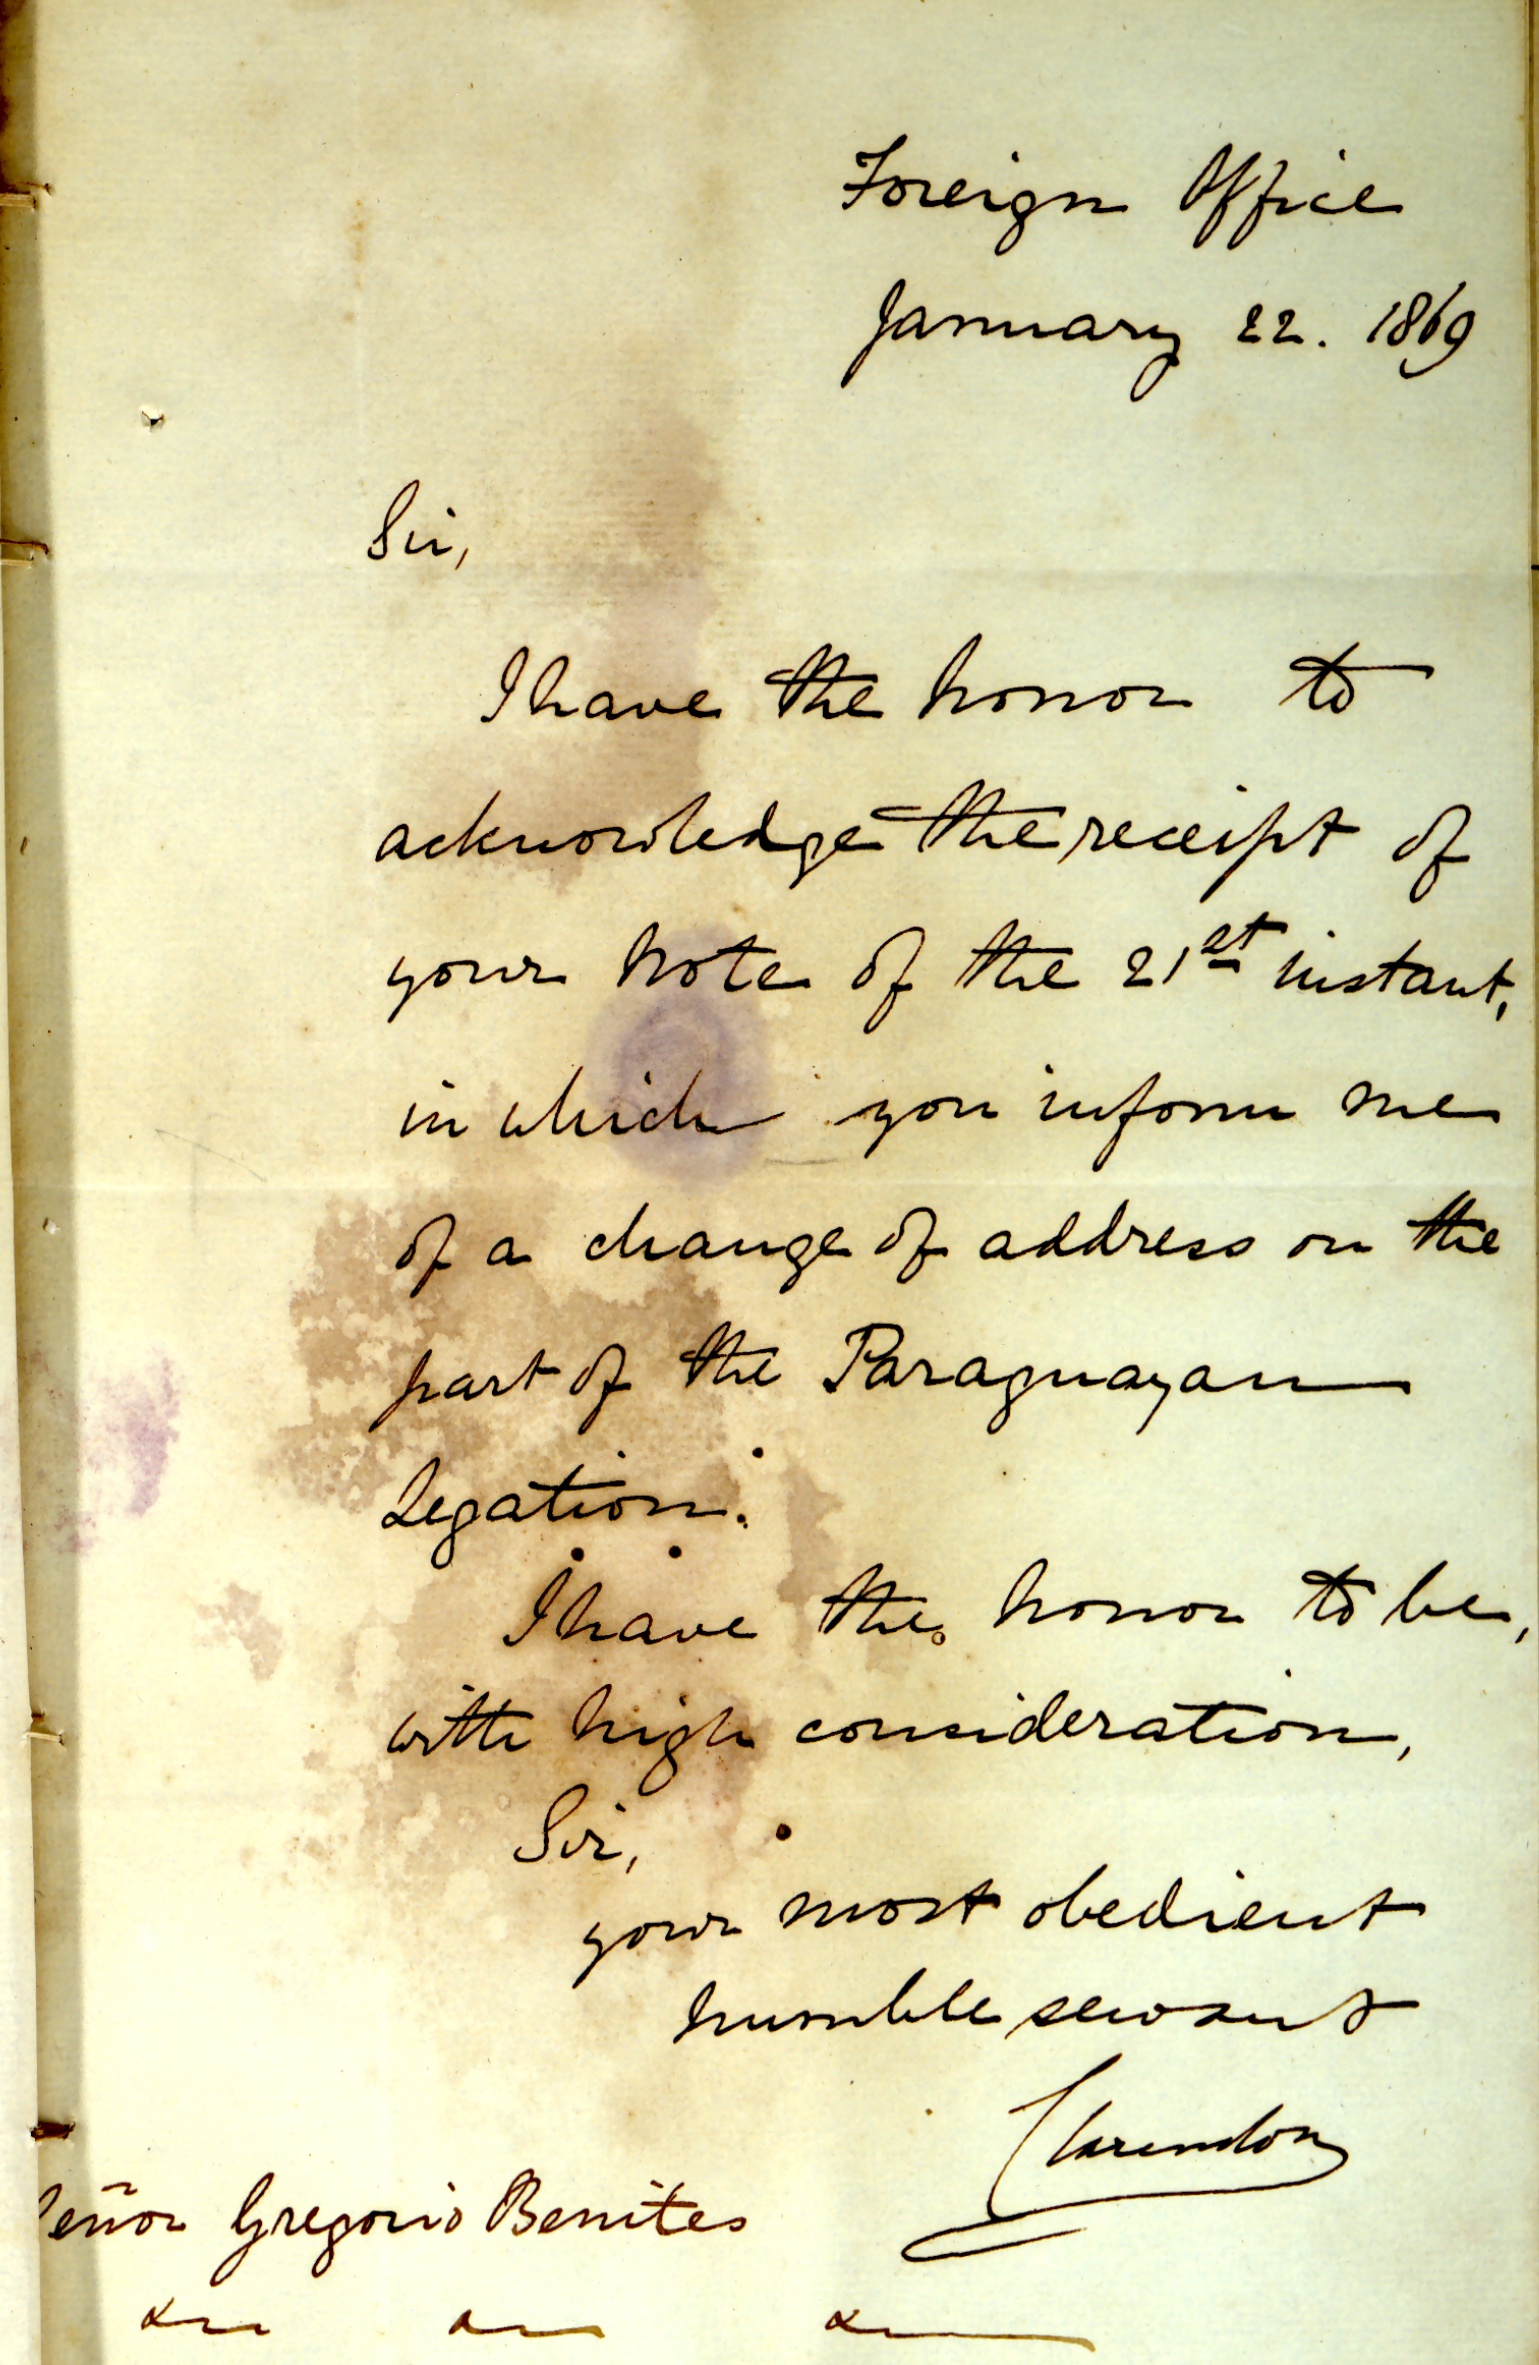 Foreign Office
January 22. 1869
Sir,
I have the honor to
acknowledge the receipt of
your Note of the 21st instant,
in which you inform me
of a change of address on the
part of the Paraguayan
Legation.
I have the honor to be,
with high consideration,
Sir,
your most obedient
humble servant
Clarendon
Señor Gregorio Benites